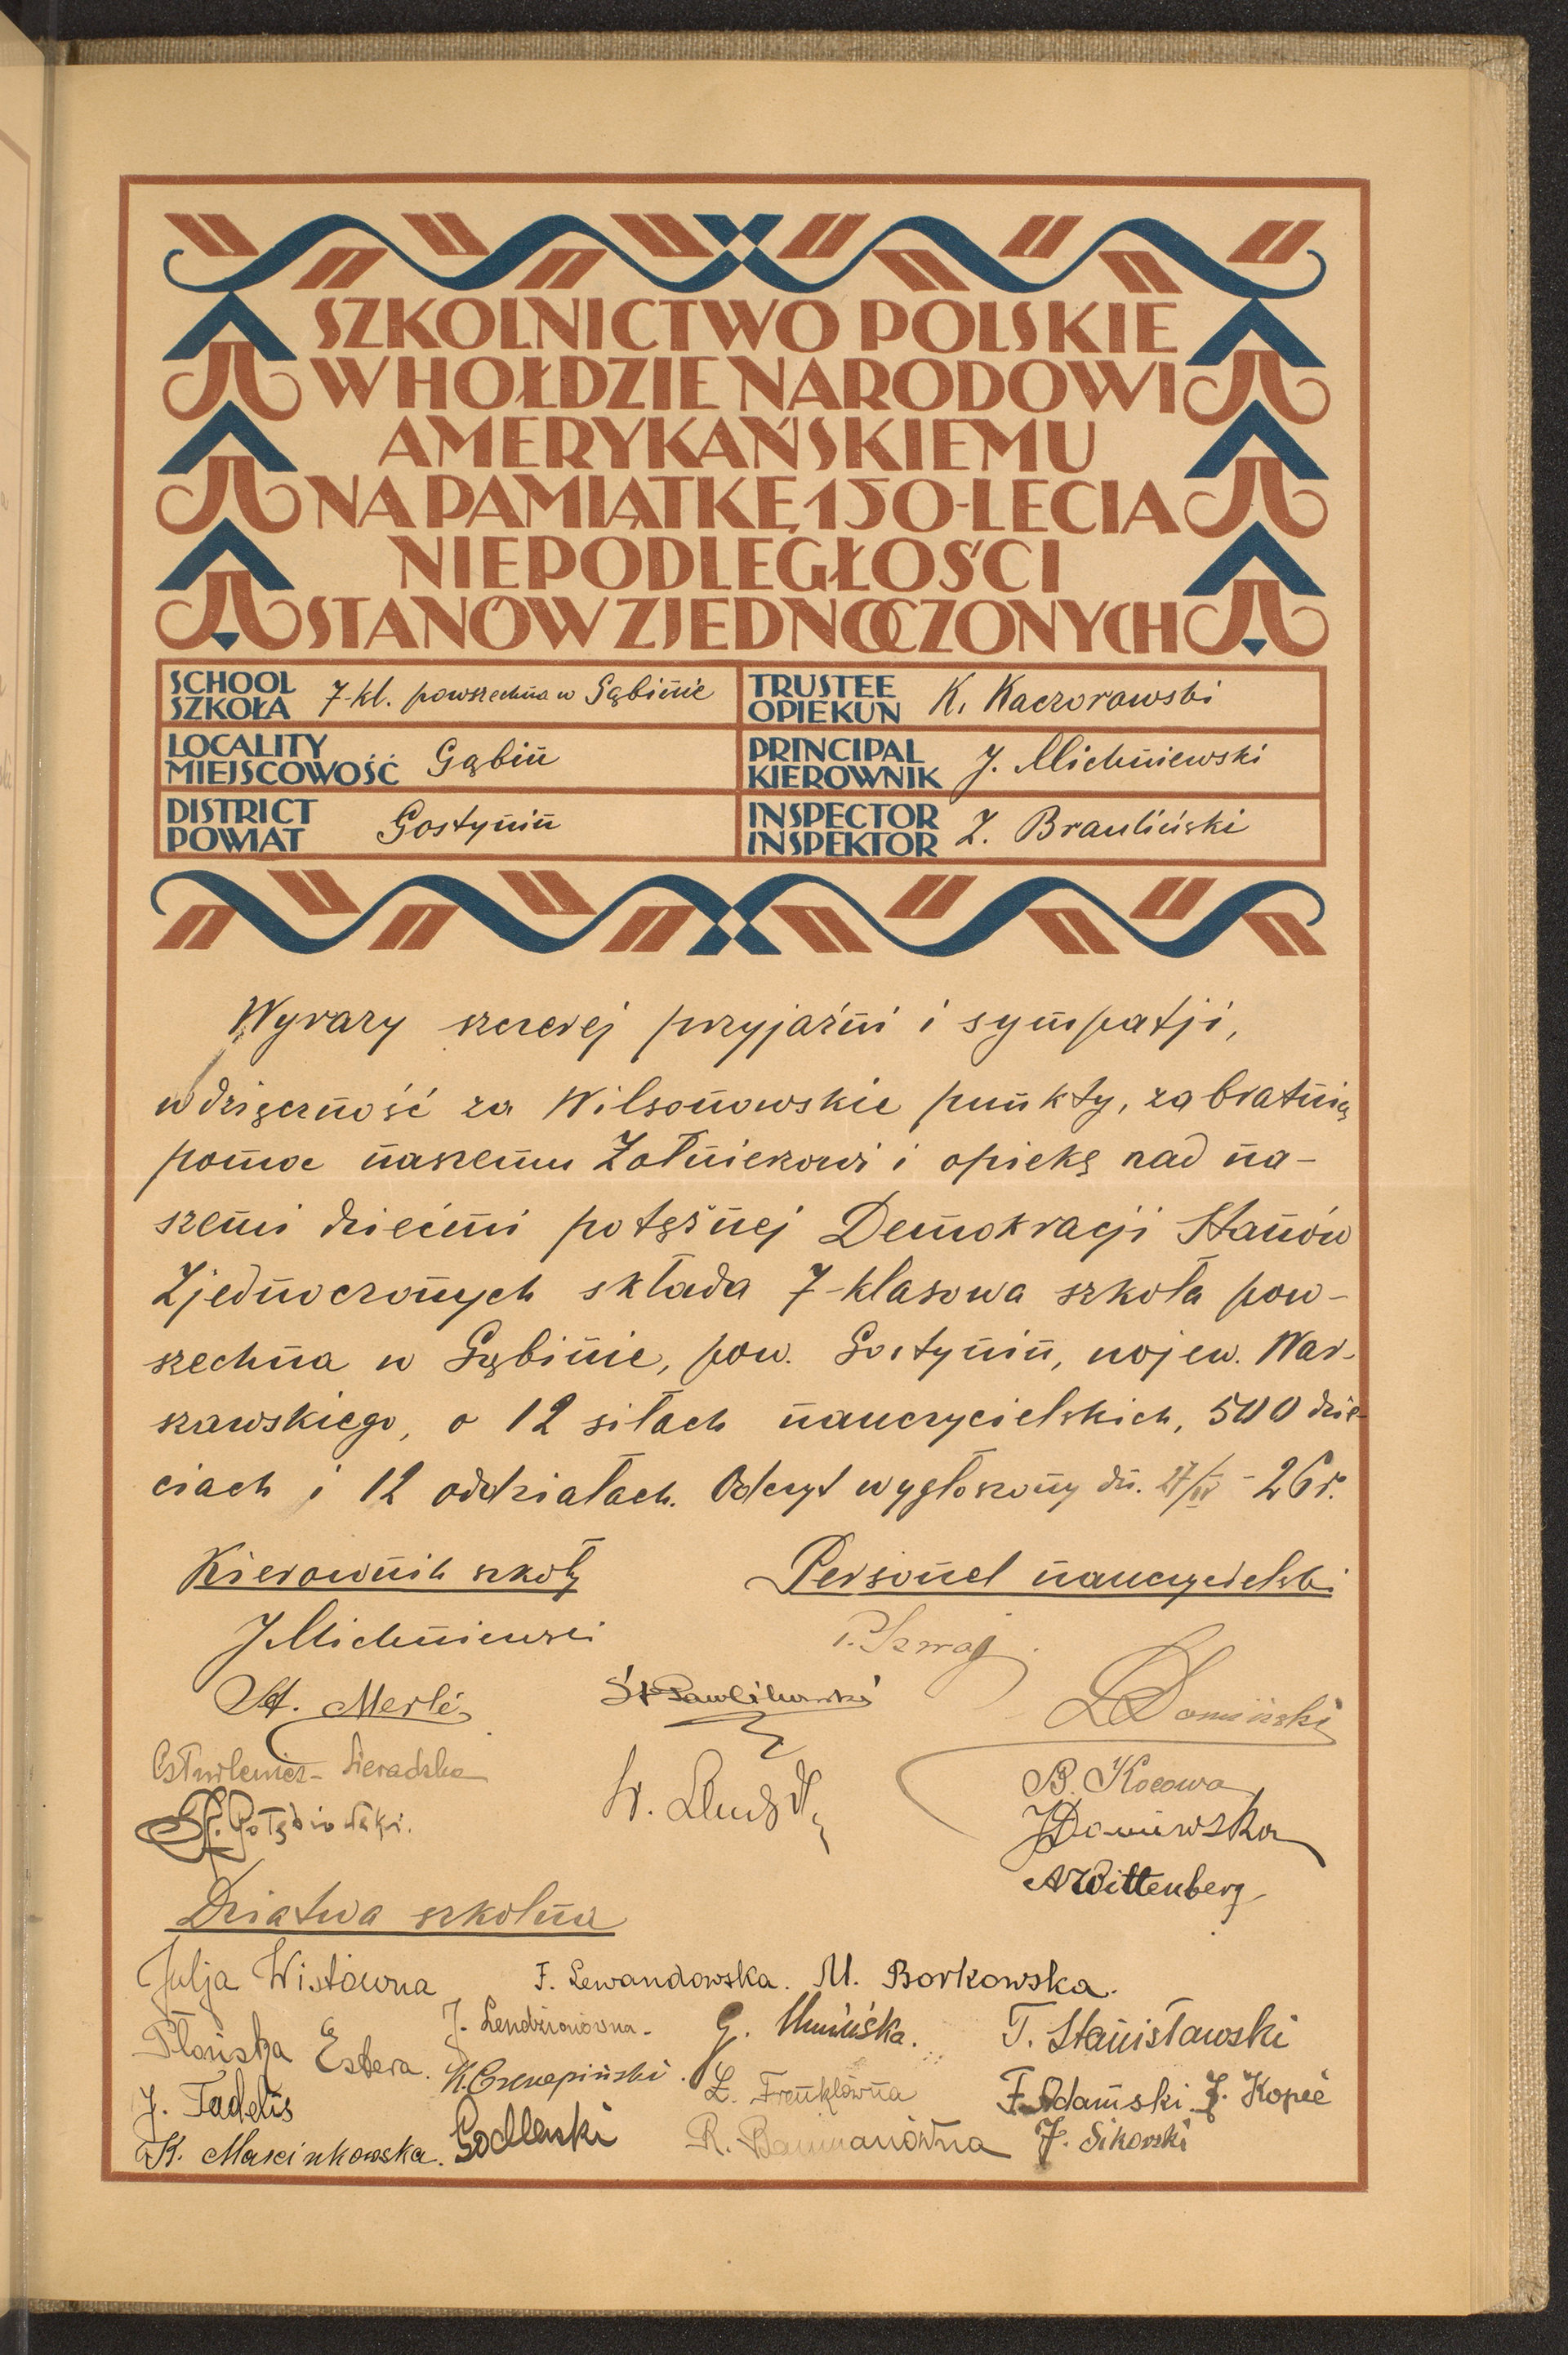 SZKOLNICTWO POLSKIE
W HOŁDZIE NARODOWI
AMERYKAŃSKIEMU
NA PAMIĄTKĘ 150-LECIA
NIEPODLEGŁOŚCI
STANÓW ZJEDNOCZONYCH
SCHOOL SZKOŁA 7-kl. powszechna w Gąbinie
TRUSTEE OPIEKUN K. Kaczorowski
LOCALITY MIEJSCOWOŚĆ Gąbin
PRINCIPAL KIEROWNIK J. Michniewski
DISTRICT POWIAT Gostynin
INSPECTOR INSPEKTOR Z. Brauliński
Wyrazy szczerej przyjaźni i sympatji,
wdzięczność za Wilsonowskie punkty, za bratnią
pomoc naszemu Żołnierzowi i opiekę nad na-
szemi dziećmi potężnej Demokracji Stanów
Zjednoczonych składa 7-klasowa szkoła pow-
szechna w Gąbinie, pow. Gostynin, wojew. War-
szawskiego, o 12 siłach nauczycielskich, 500 dzie-
ciach i 12 oddziałach. Odczyt wygłoszony dn. 27/IV - 26 r.
Kierownik szkoły
Personel nauczycielski
J Michniewski
P. Szwaj
St. Merle
St Pawlikowski
L Domiński
Sieradzka
B. Kocowa
St. Gołębiowski.
J Domińska
A Wittenberg
Dziatwa szkolna
Julja Wistówna F. Lewandowska. M. Borkowska.
J. Lendzionówna. G. Umińska. T. Stanisławski
Płońska Estera. K. Czerepiński. L. Frenklówna F. Adamski. J. Kopeć
J. Tadelis
K. Marcinkowska. Godlewski R. Baumanówna J. Sikorski